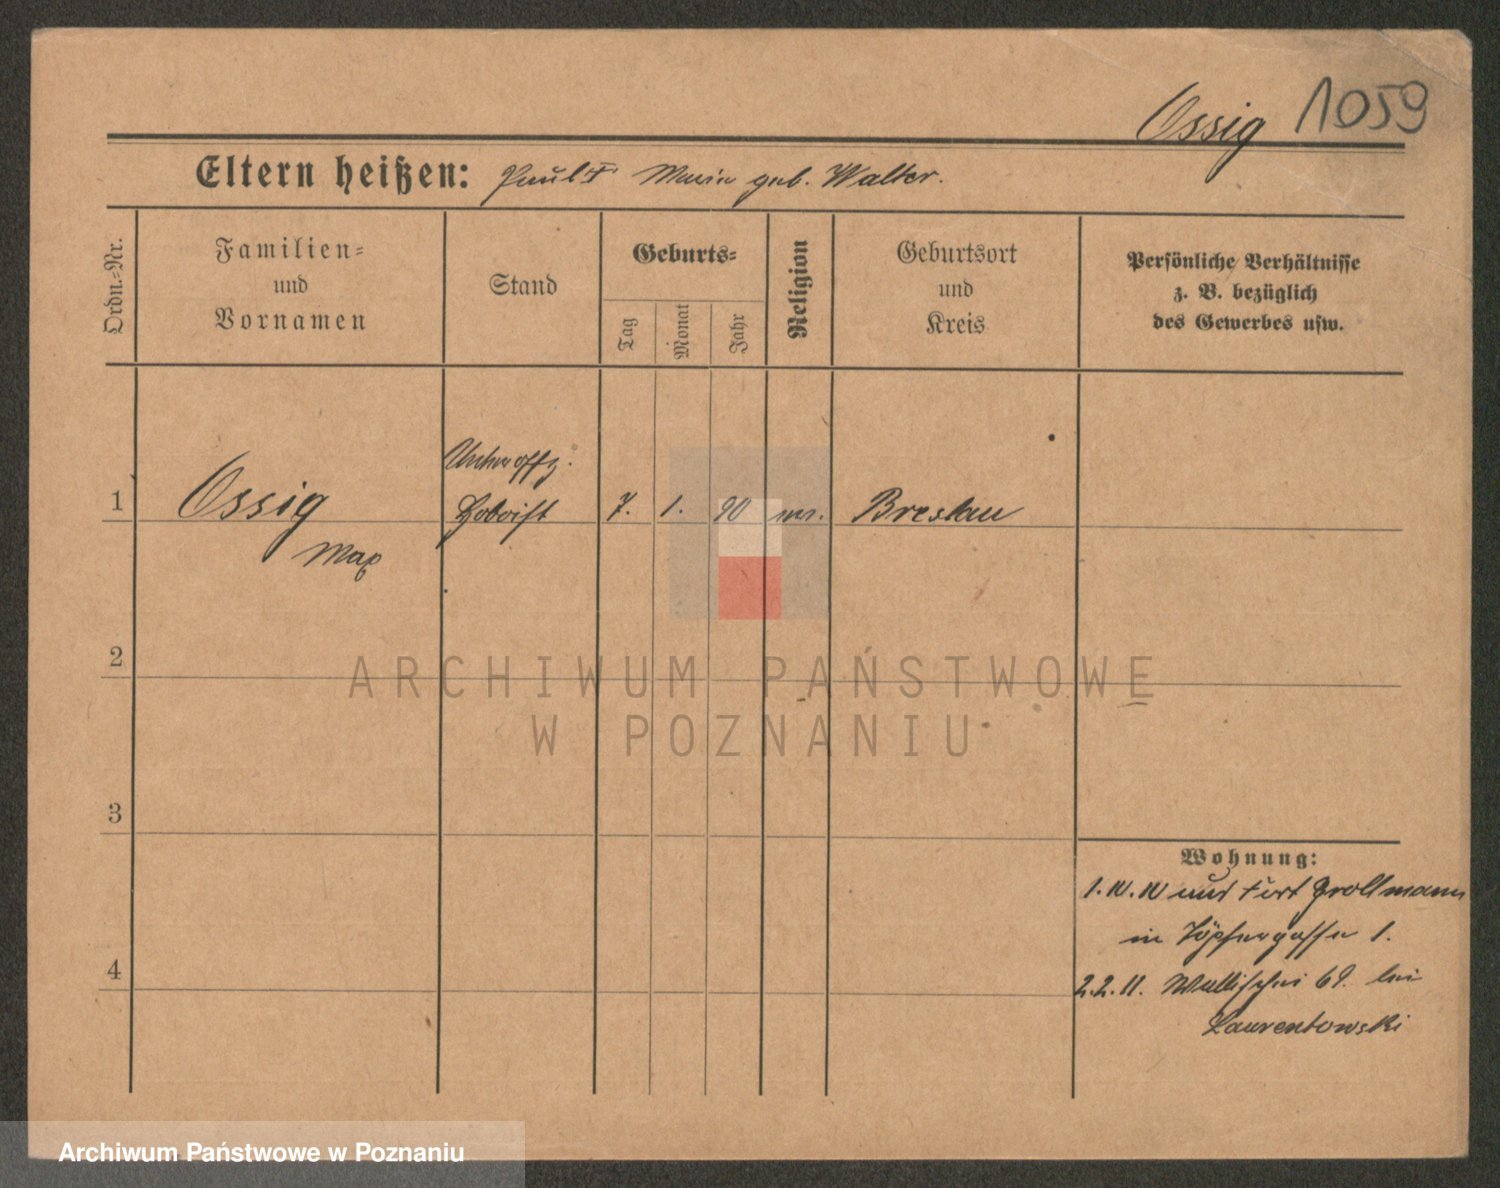 Ossig 1059
Eltern heißen: Paul † Marie geb. Walter.
Ordn.-Nr.
Familien-
und
Vornamen
Stand
Geburts-
Tag
Monat
Jahr
Religion
Geburtsort
und
Kreis
Persönliche Verhältnisse
z. B. bezüglich
des Gewerbes usw.
1
Ossig
Max
Unteroffz.
Hoboist
7.
1.
90
Breslau
2
ARCHIWUM PAŃSTWOWE
W POZNANIU
3
Wohnung:
1.10.10 Fort Grollmann
in Töpfergasse 1.
4
2.2.11. Wallischei 69. bei
Laurentowski
Archiwum Państwowe w Poznaniu